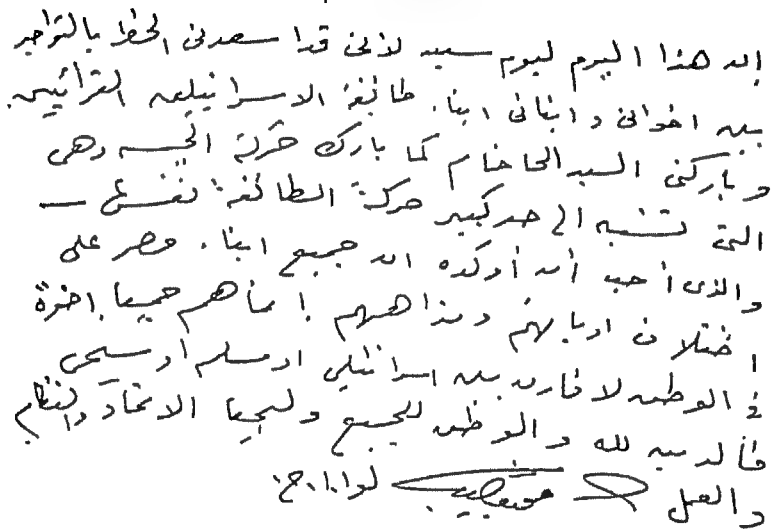 إن هذا اليوم ليوم سعيد لأنني قد أسعدني الحظ بالتواجد
بين اخواني وابنائي ابناء طائفة الاسرائيليين القرائيين
وباركني السيد الحاخام كما بارك حركة الجيش وهي
التي تشبه الى حد كبير حركة الطائفة نفسها
والذى أحب أن أوكده ان جميع ابناء مصر على
اختلاف اديانهم ومذاهبهم إنما هم جميعا إخوة
في الوطن لا فارق بين اسرائيلي او مسلم أو مسيحى
فالدين لله والوطن للجميع وليحيا الاتحاد والنظام
والعمل محمد نجيب لواء أ. ح.